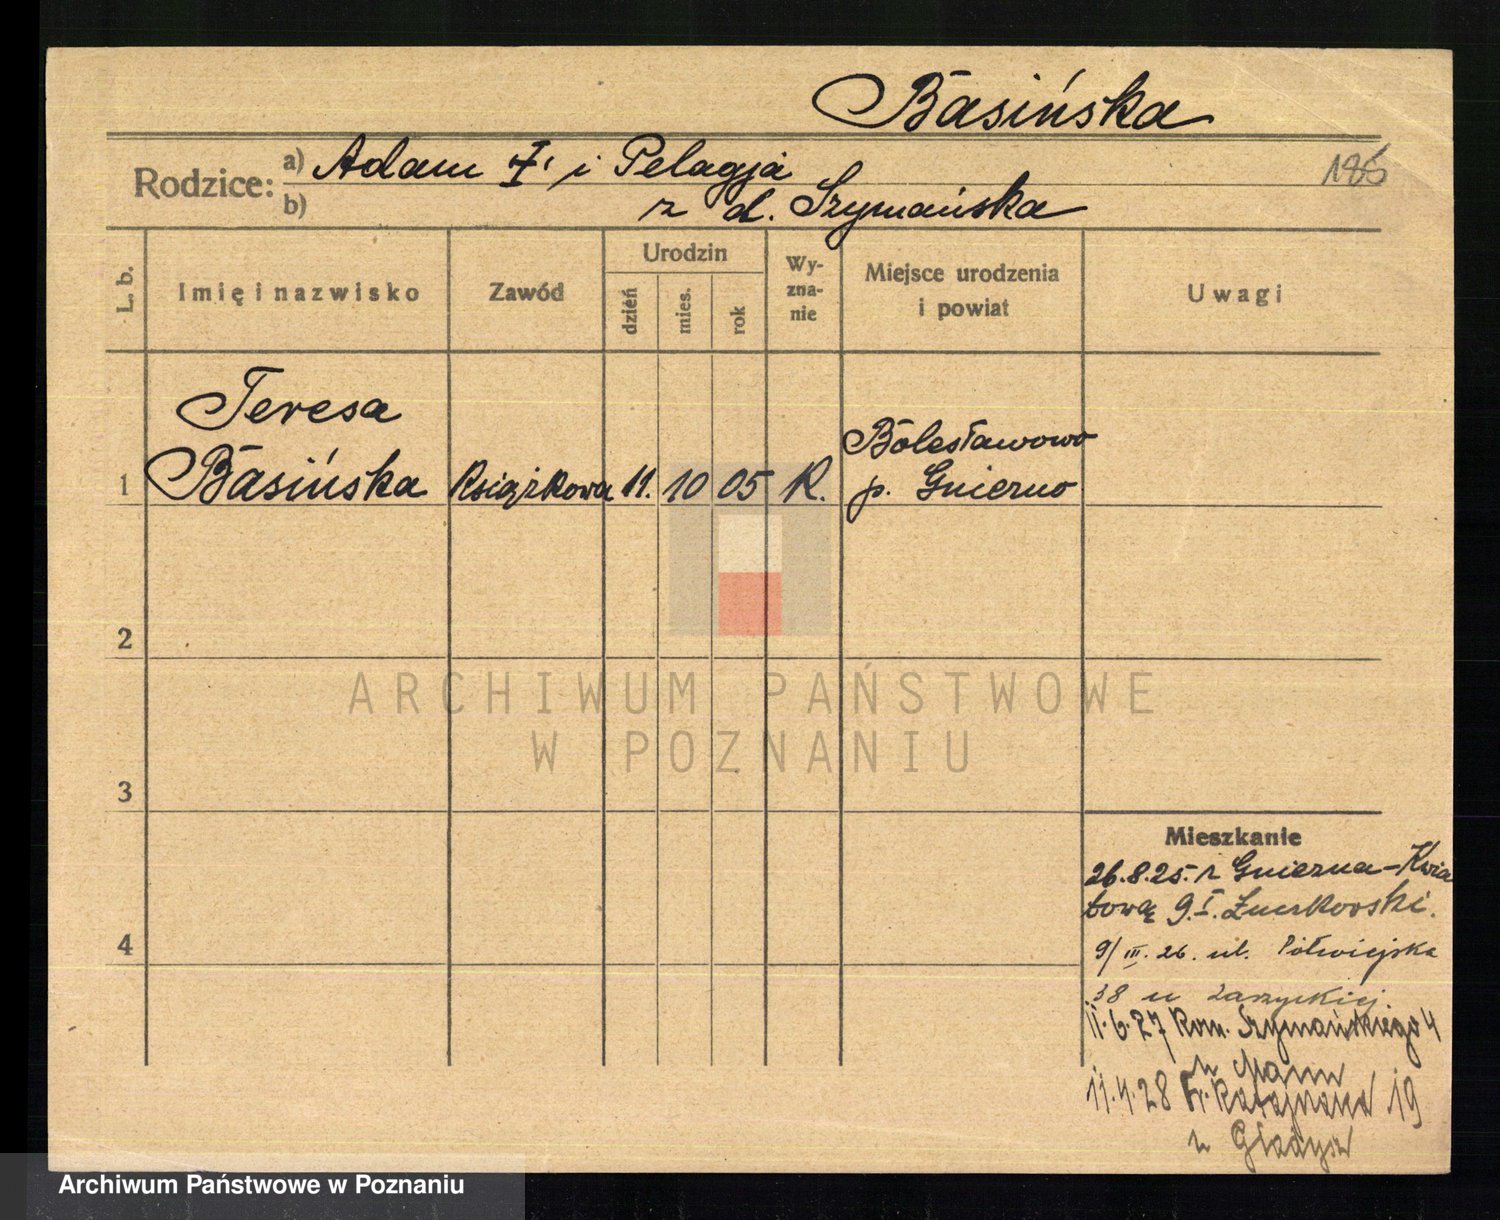 Basińska
Rodzice: a) Adam †. i Pelagja
b) z d. Szymańska
186
L. b.
Imię i nazwisko
Zawód
Urodzin
dzień
mies.
rok
Wy-
zna-
nie
Miejsce urodzenia
i powiat
Uwagi
Teresa
1 Basińska Książkowa 11. 10 05 R.
Bolesławowo
p. Gniezno
2
ARCHIWUM PAŃSTWOWE
W POZNANIU
3
Mieszkanie
26.8.25. z Gniezna - Kwia
tową 9.I.
4
9/III. 26. ul. Półwiejska
38 u
11.6.27 Kom. Szymańskiego 4
u
11.4.28 Fr. Ratajczaka 19
u
Archiwum Państwowe w Poznaniu